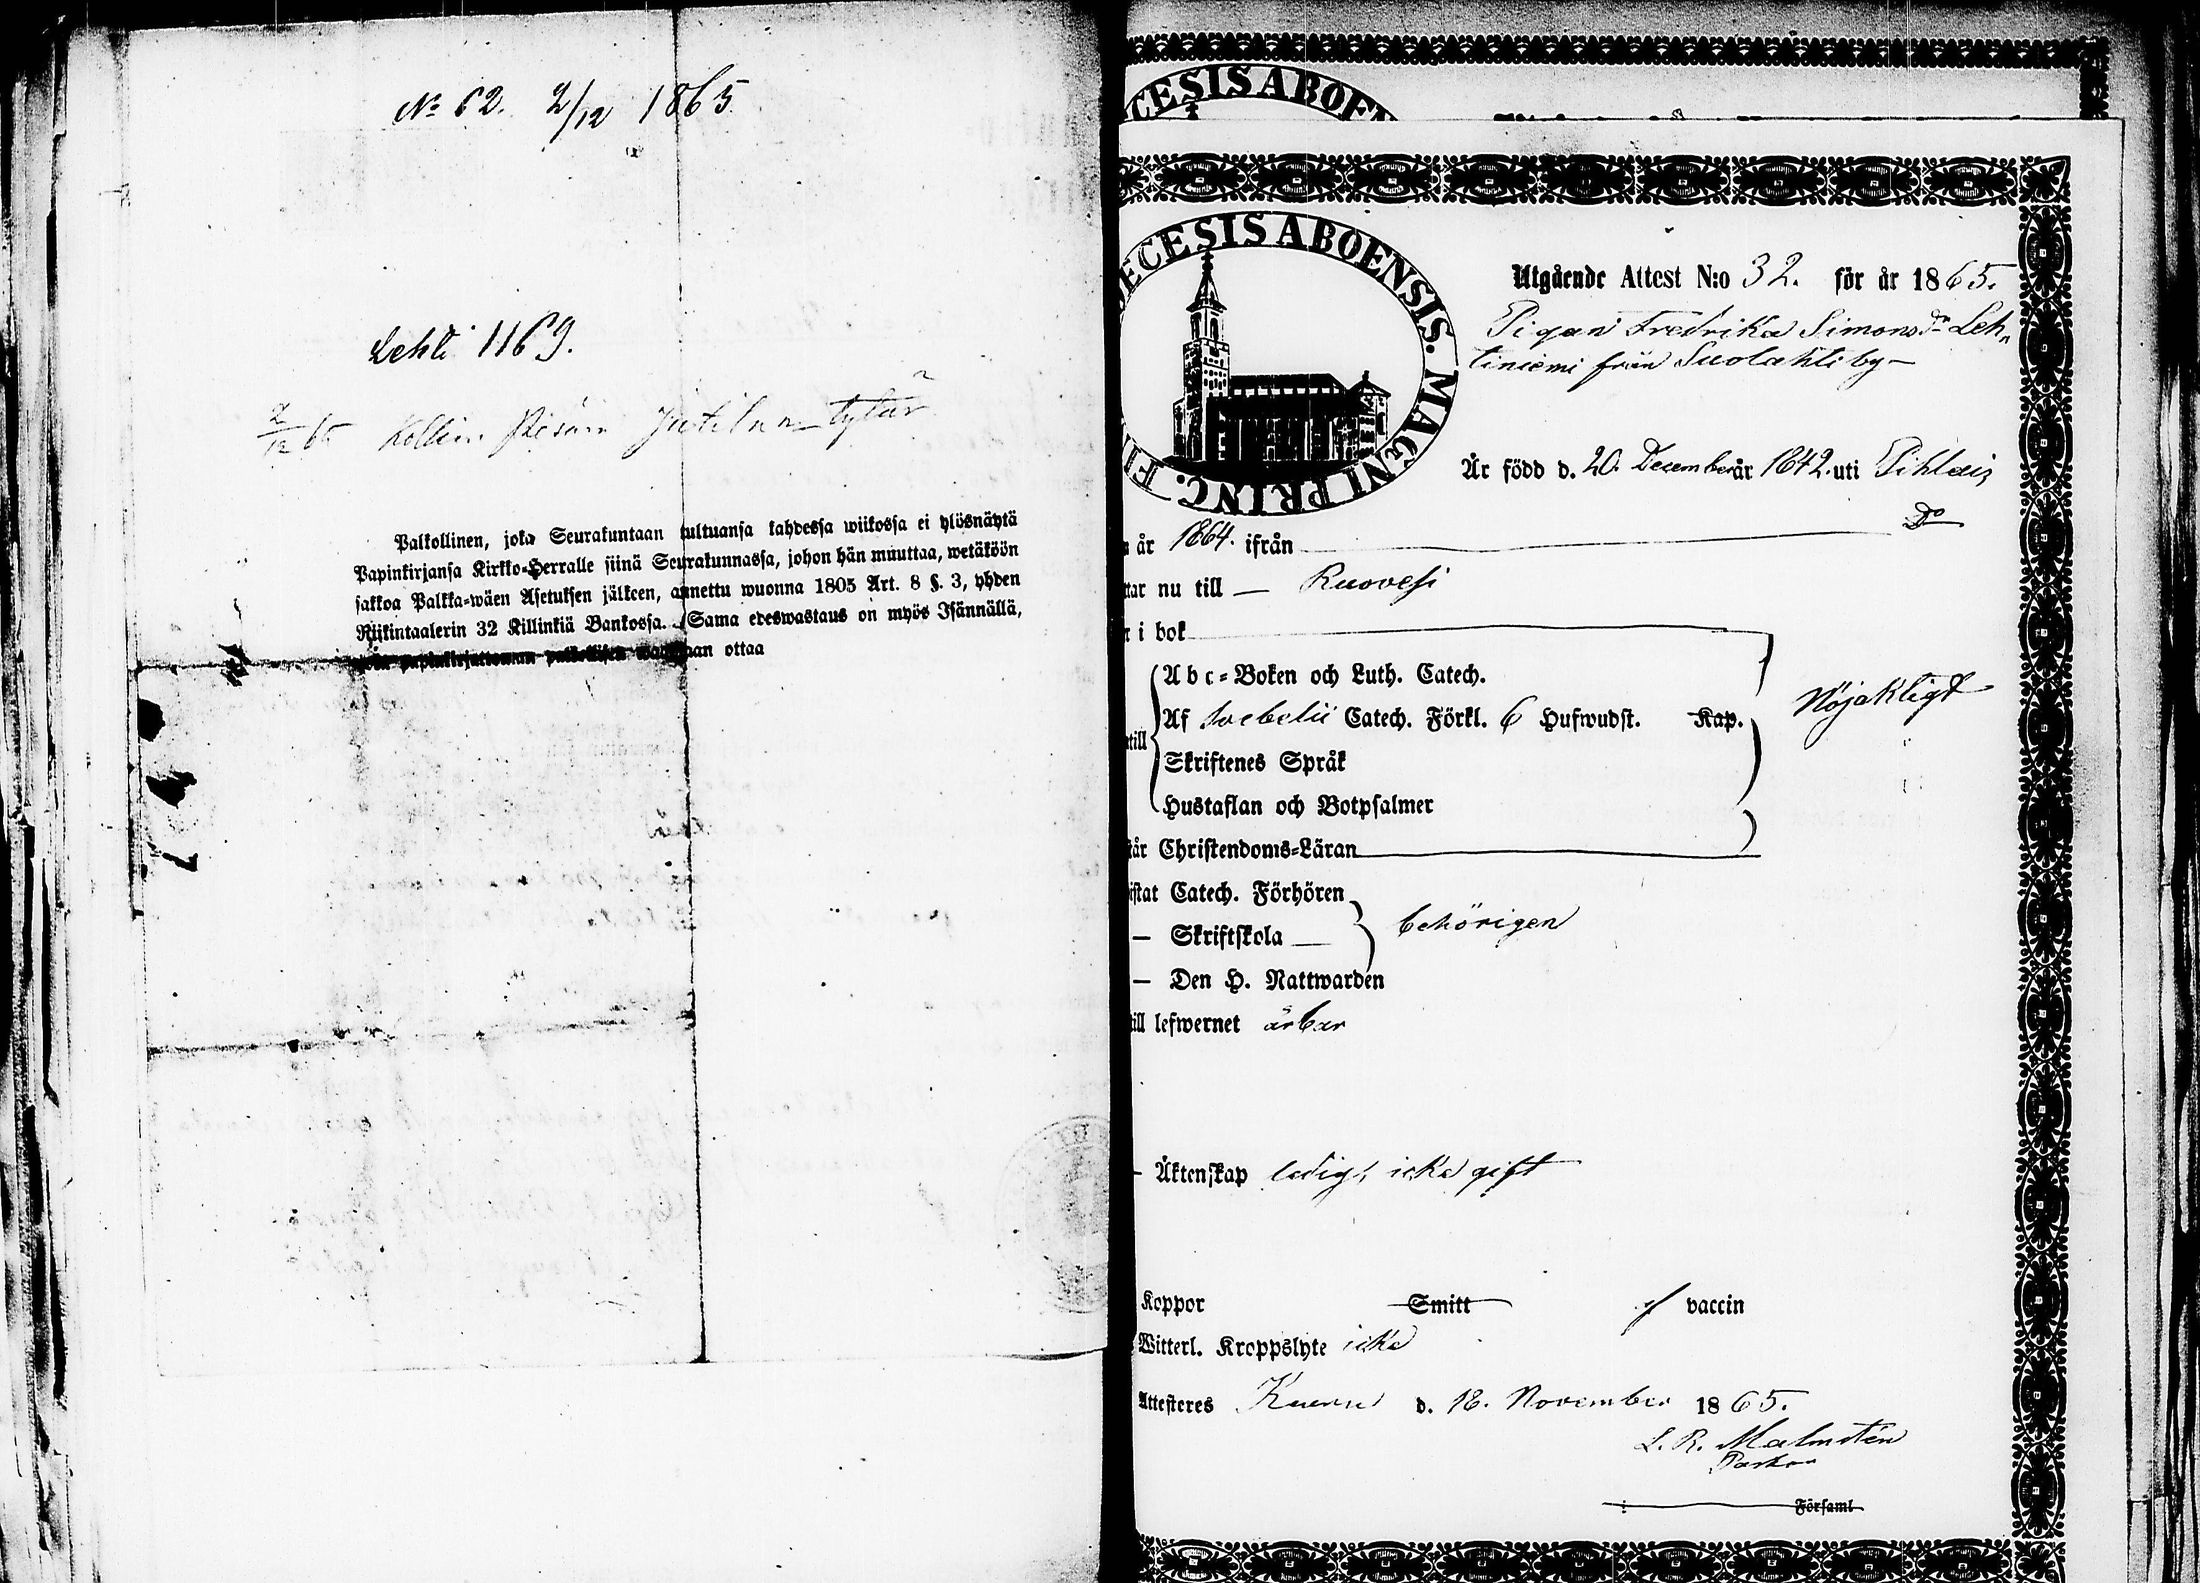 No 62. 2/12 1865
Lehti 1169.
2/12 65
Palkollinen, joka Seurakuntaan tultuansa kahdessa wiikossa ei ylösnäytä
Papinkirjansa Kirkko-Herralle siinä Seurakunnassa, johon hän muuttaa, wetäköön
sakkoa Palkka-wäen Asetuksen jälkeen, annettu wuonna 1805 Art. 8 §. 3, yhden
Riikintaalerin 32 Killinkiä Bankossa. Sama edeswastaus on myös Isännällä,
papinkirjattoman palkollisen ottaa
CESIS ABOE
ECESIS ABOENSIS. MAGNI PRINC. FI
Utgående Attest N:o 32. för år 1865.
Pigan Fredrika Simonsdr Leh-
tiniemi från Suolahti by
Är född d. 20. December år 1842. uti Pihlais
Do
år 1864. ifrån
tar nu till — Ruovesi
i bok
Abc-Boken och Luth. Catech.
Af Svebelii Catech. Förkl. 6 Hufwudst. Kap.
Nöjaktigt
till
Skriftenes Språk
Hustaflan och Botpsalmer
tår Christendoms-Läran
istat Catech. Förhören
— Skriftskola
behörigen
— Den H. Nattwarden
till lefwernet ärbar
- Äktenskap ledig, icke gift
Koppor Smitt af vaccin
Witterl. Kroppslyte icke
Attesteres Kuoru d. 18. November 1865.
L. R. Malmstén
Pastor
Församl